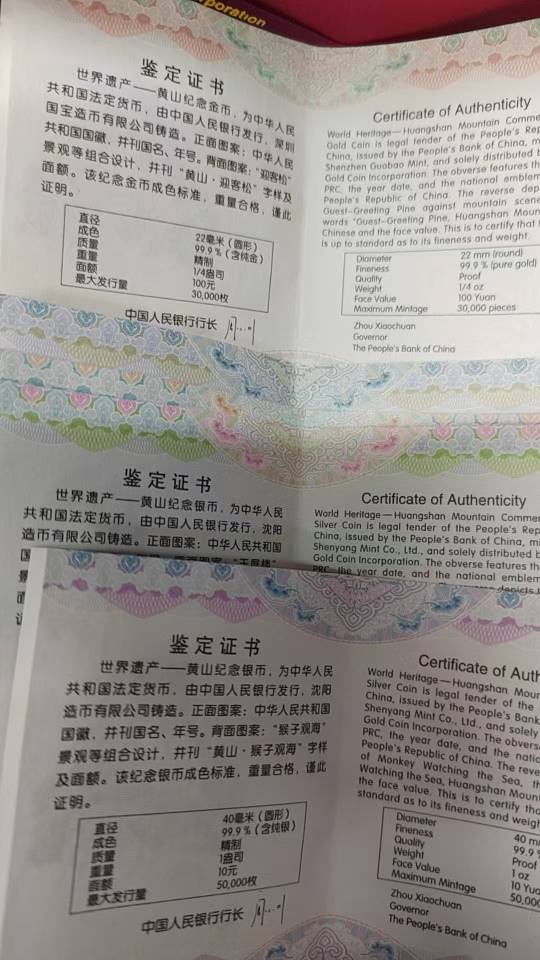 poration
鉴定证书
世界遗产——黄山纪念金币，为中华人民
共和国法定货币，由中国人民银行发行，深圳
国宝造币有限公司铸造。正面图案：中华人民
共和国国徽，并刊国名、年号。背面图案："迎客松"
景观等组合设计，并刊"黄山·迎客松"字样及
面额。该纪念金币成色标准，重量合格，谨此
证明。
直径 22毫米（圆形）
成色 99.9％（含纯金）
质量 精制
重量 1/4盎司
面额 100元
最大发行量 30,000枚
中国人民银行行长
Certificate of Authenticity
World Heritage—Huangshan Mountain Comme
Gold Coin is legal tender of the People's Rep
China, issued by the People's Bank of China, m
Shenzhen Guobao Mint, and solely distributed b
Gold Coin Incorporation. The obverse features th
PRC, the year date, and the national emblem
People's Republic of China. The reverse dep
Guest-Greeting Pine against mountain scene
words "Guest-Greeting Pine, Huangshan Moun
Chinese and the face value. This is to certify that
is up to standard as to its fineness and weight.
Diameter 22 mm (round)
Fineness 99.9 % (pure gold)
Quality Proof
Weight 1/4 oz
Face Value 100 Yuan
Maximum Mintage 30,000 pieces
Zhou Xiaochuan
Governor
The People's Bank of China
鉴定证书
世界遗产——黄山纪念银币，为中华人民
共和国法定货币，由中国人民银行发行，沈阳
造币有限公司铸造。正面图案：中华人民共和国
Certificate of Authenticity
World Heritage—Huangshan Mountain Commer
Silver Coin is legal tender of the People's Rep
China, issued by the People's Bank of China, mi
Shenyang Mint Co., Ltd., and solely distributed b
Gold Coin Incorporation. The obverse features th
PRC, the year date, and the national emblem
depicts t
鉴定证书
世界遗产——黄山纪念银币，为中华人民
共和国法定货币，由中国人民银行发行，沈阳
造币有限公司铸造。正面图案：中华人民共和国
国徽，并刊国名、年号。背面图案："猴子观海"
景观等组合设计，并刊"黄山·猴子观海"字样
及面额。该纪念银币成色标准，重量合格，谨此
证明。
直径 40毫米（圆形）
成色 99.9％（含纯银）
质量 精制
重量 1盎司
面额 10元
最大发行量 50,000枚
中国人民银行行长
Certificate of Auth
World Heritage—Huangshan Mour
Silver Coin is legal tender of the
China, issued by the People's Bank
Shenyang Mint Co., Ltd., and solely
Gold Coin Incorporation. The obvers
PRC, the year date, and the natio
People's Republic of China. The reve
of Monkey Watching the Sea, th
Watching the Sea, Huangshan Moun
the face value. This is to certify tha
standard as to its fineness and weigh
Diameter 40 m
Fineness 99.9
Quality Proof
Weight 1 oz
Face Value 10 Yua
Maximum Mintage 50,00
Zhou Xiaochuan
Governor
The People's Bank of China